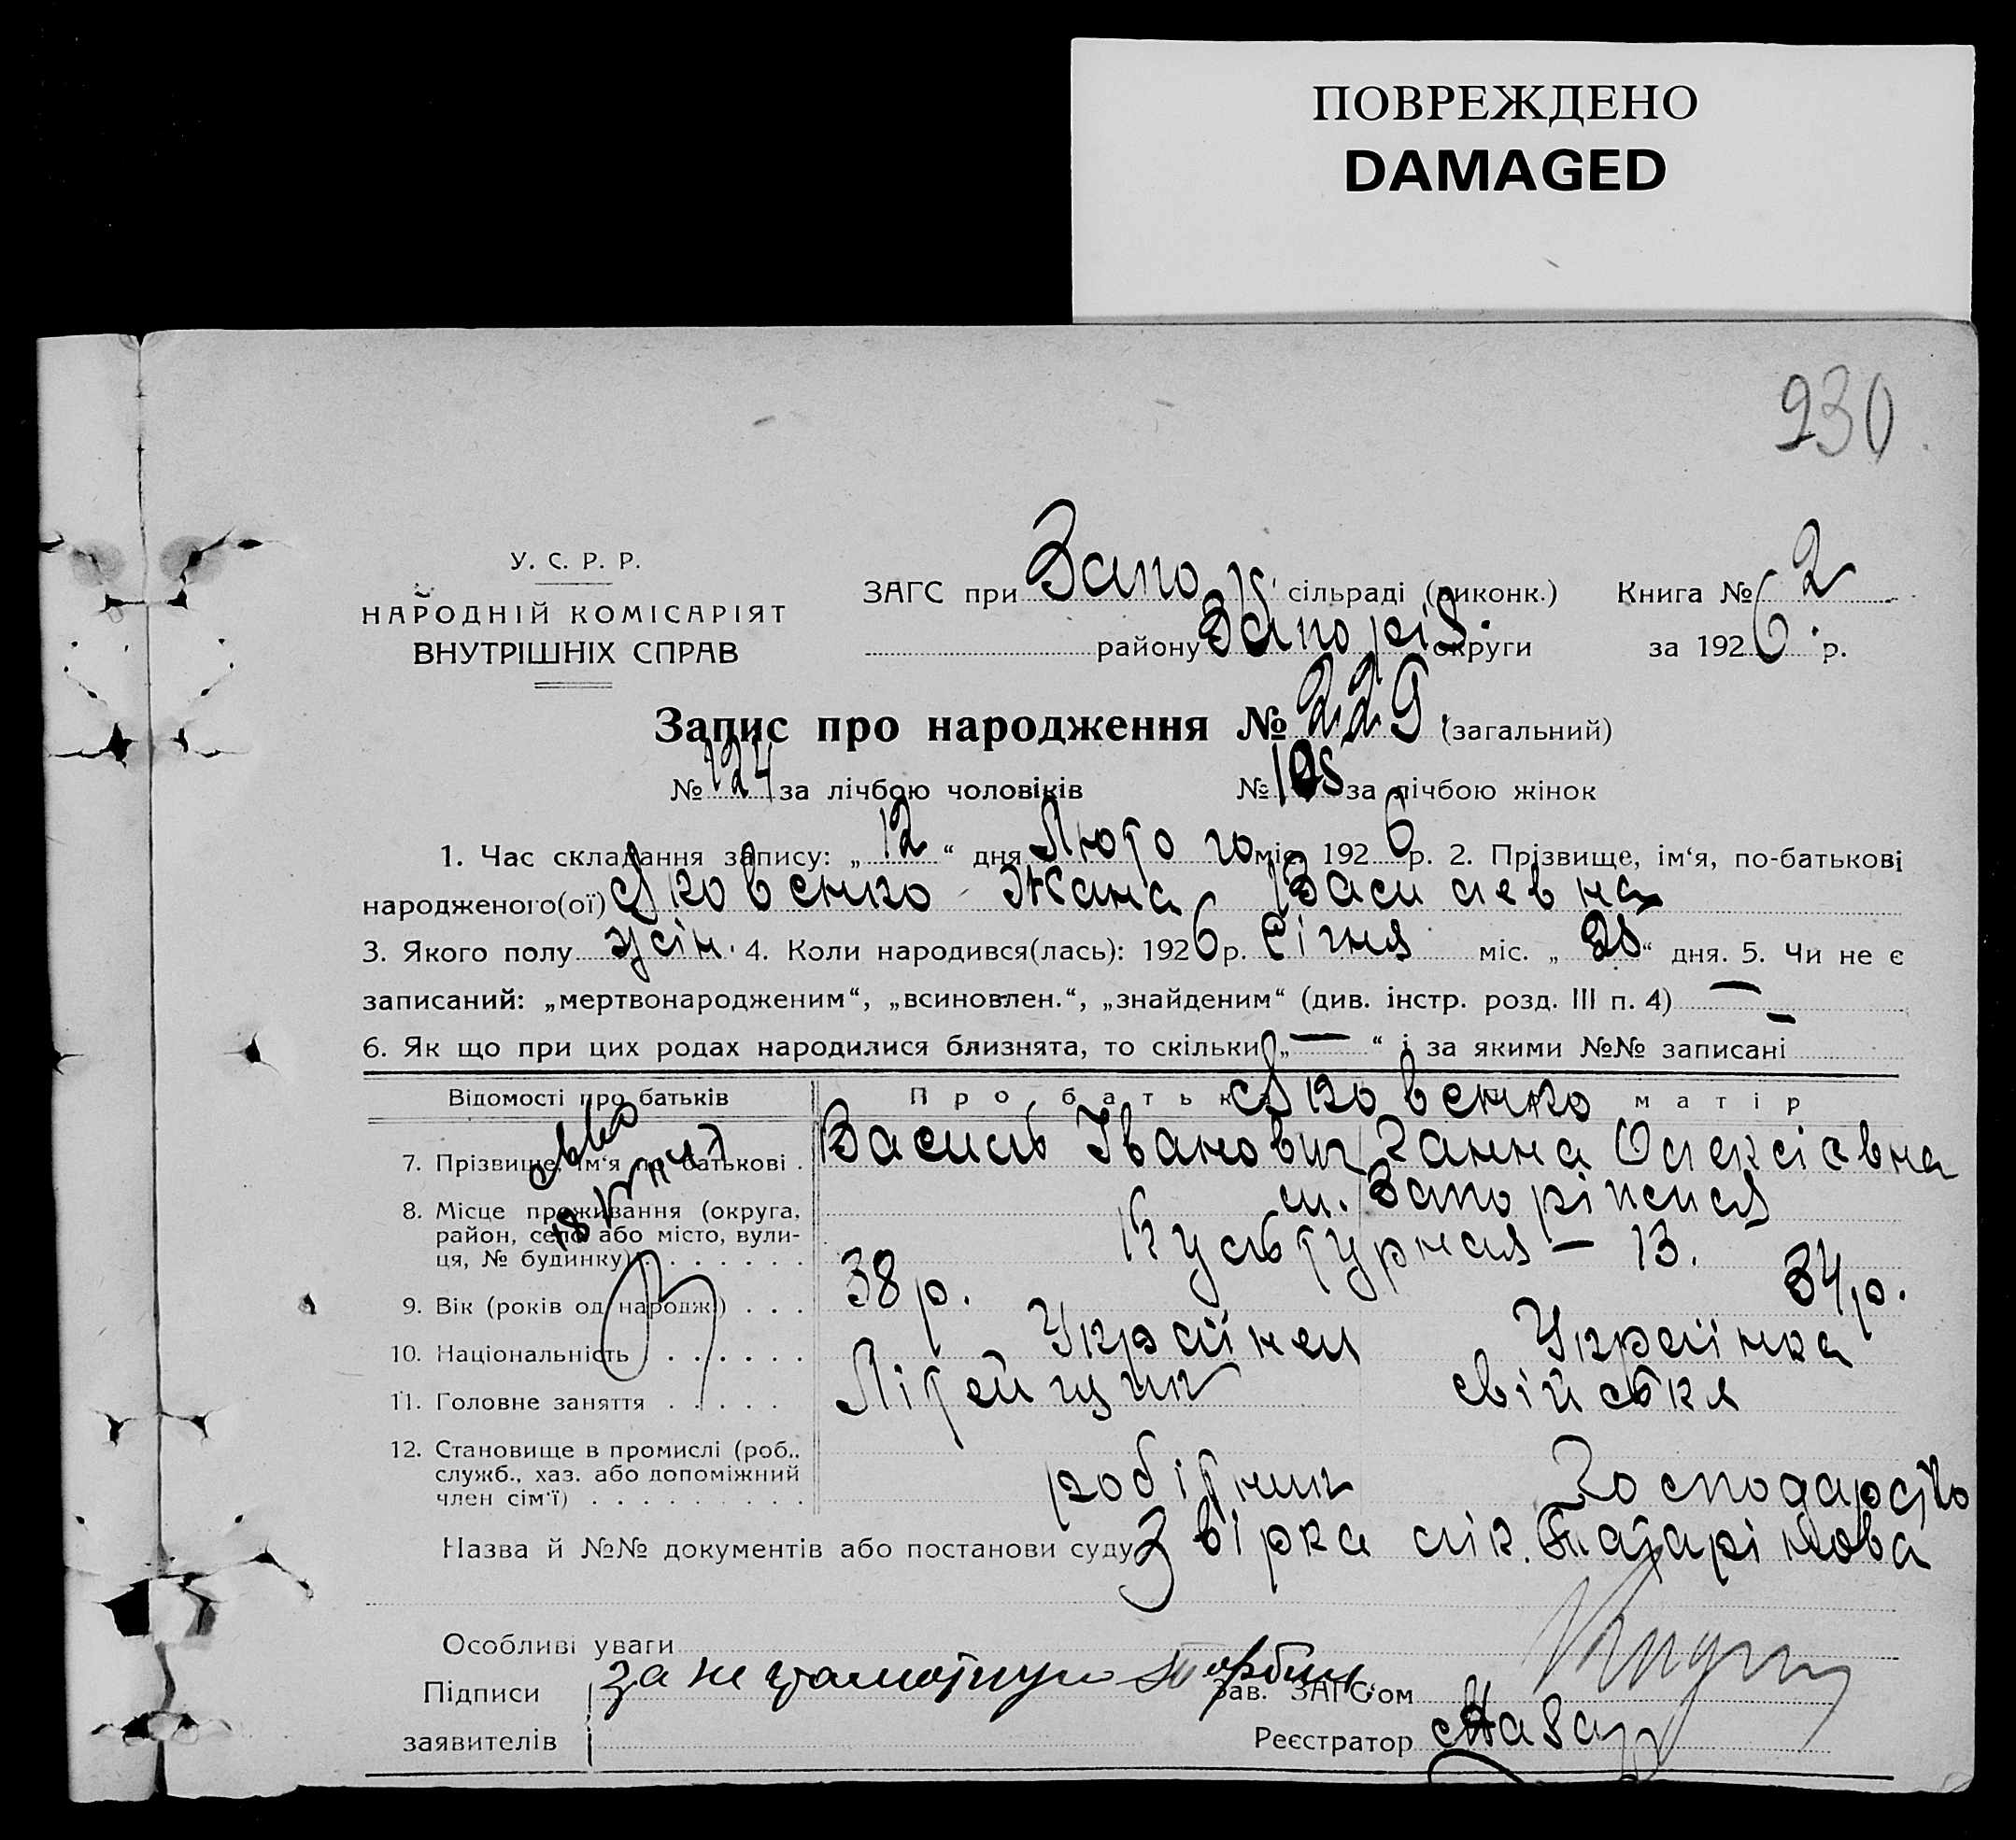 ПОВРЕЖДЕНО
DAMAGED
230
У. С. Р. Р.
НАРОДНІЙ КОМІСАРІЯТ
ВНУТРІШНІХ СПРАВ
ЗАГС при Запор. сільраді (виконк.) Книга № 2
району Запоріз. округи за 1926 р.
Запис про народження № 229. (загальний)
№ 124 за лічбою чоловіків № 105 за лічбою жінок
1. Час складання запису: „12“ дня Лютого міс. 1926 р. 2. Прізвище, ім‘я, по-батькові
народженого(ої) Яковенко Жана Василевна
3. Якого полу жін. 4. Коли народився(лась): 1926 р. Січня міс. „28“ дня. 5. Чи не є
записаний: „мертвонародженим“, „всиновлен.“, „знайденим“ (див. інстр. розд. III п. 4) —
6. Як що при цих родах народилися близнята, то скільки „—“ і за якими №№ записані —
Відомості про батьків Про батька Яковенко матір
7. Прізвище, ім‘я по батькові . Василь Іванович Ганна Олексіївна
8. Місце проживання (округа, район, село або місто, вулиця, № будинку) . . . . . . . м. Запоріжжя
Культурная — 13.
9. Вік (років од народж.) . . . 38 р. 34 р.
10. Національність . . . . . . Українец Українка
11. Головне заняття . . . . . Літейщик свійське
12. Становище в промислі (роб., служб., хаз. або допоміжний член сім‘ї) . . . . . . . . . робітник Господарство
Назва й №№ документів або постанови суду Звірка лік. Татарінова
Особливі уваги
Підписи за неграмотную
Зав. ЗАГС‘ом
заявителів Реєстратор